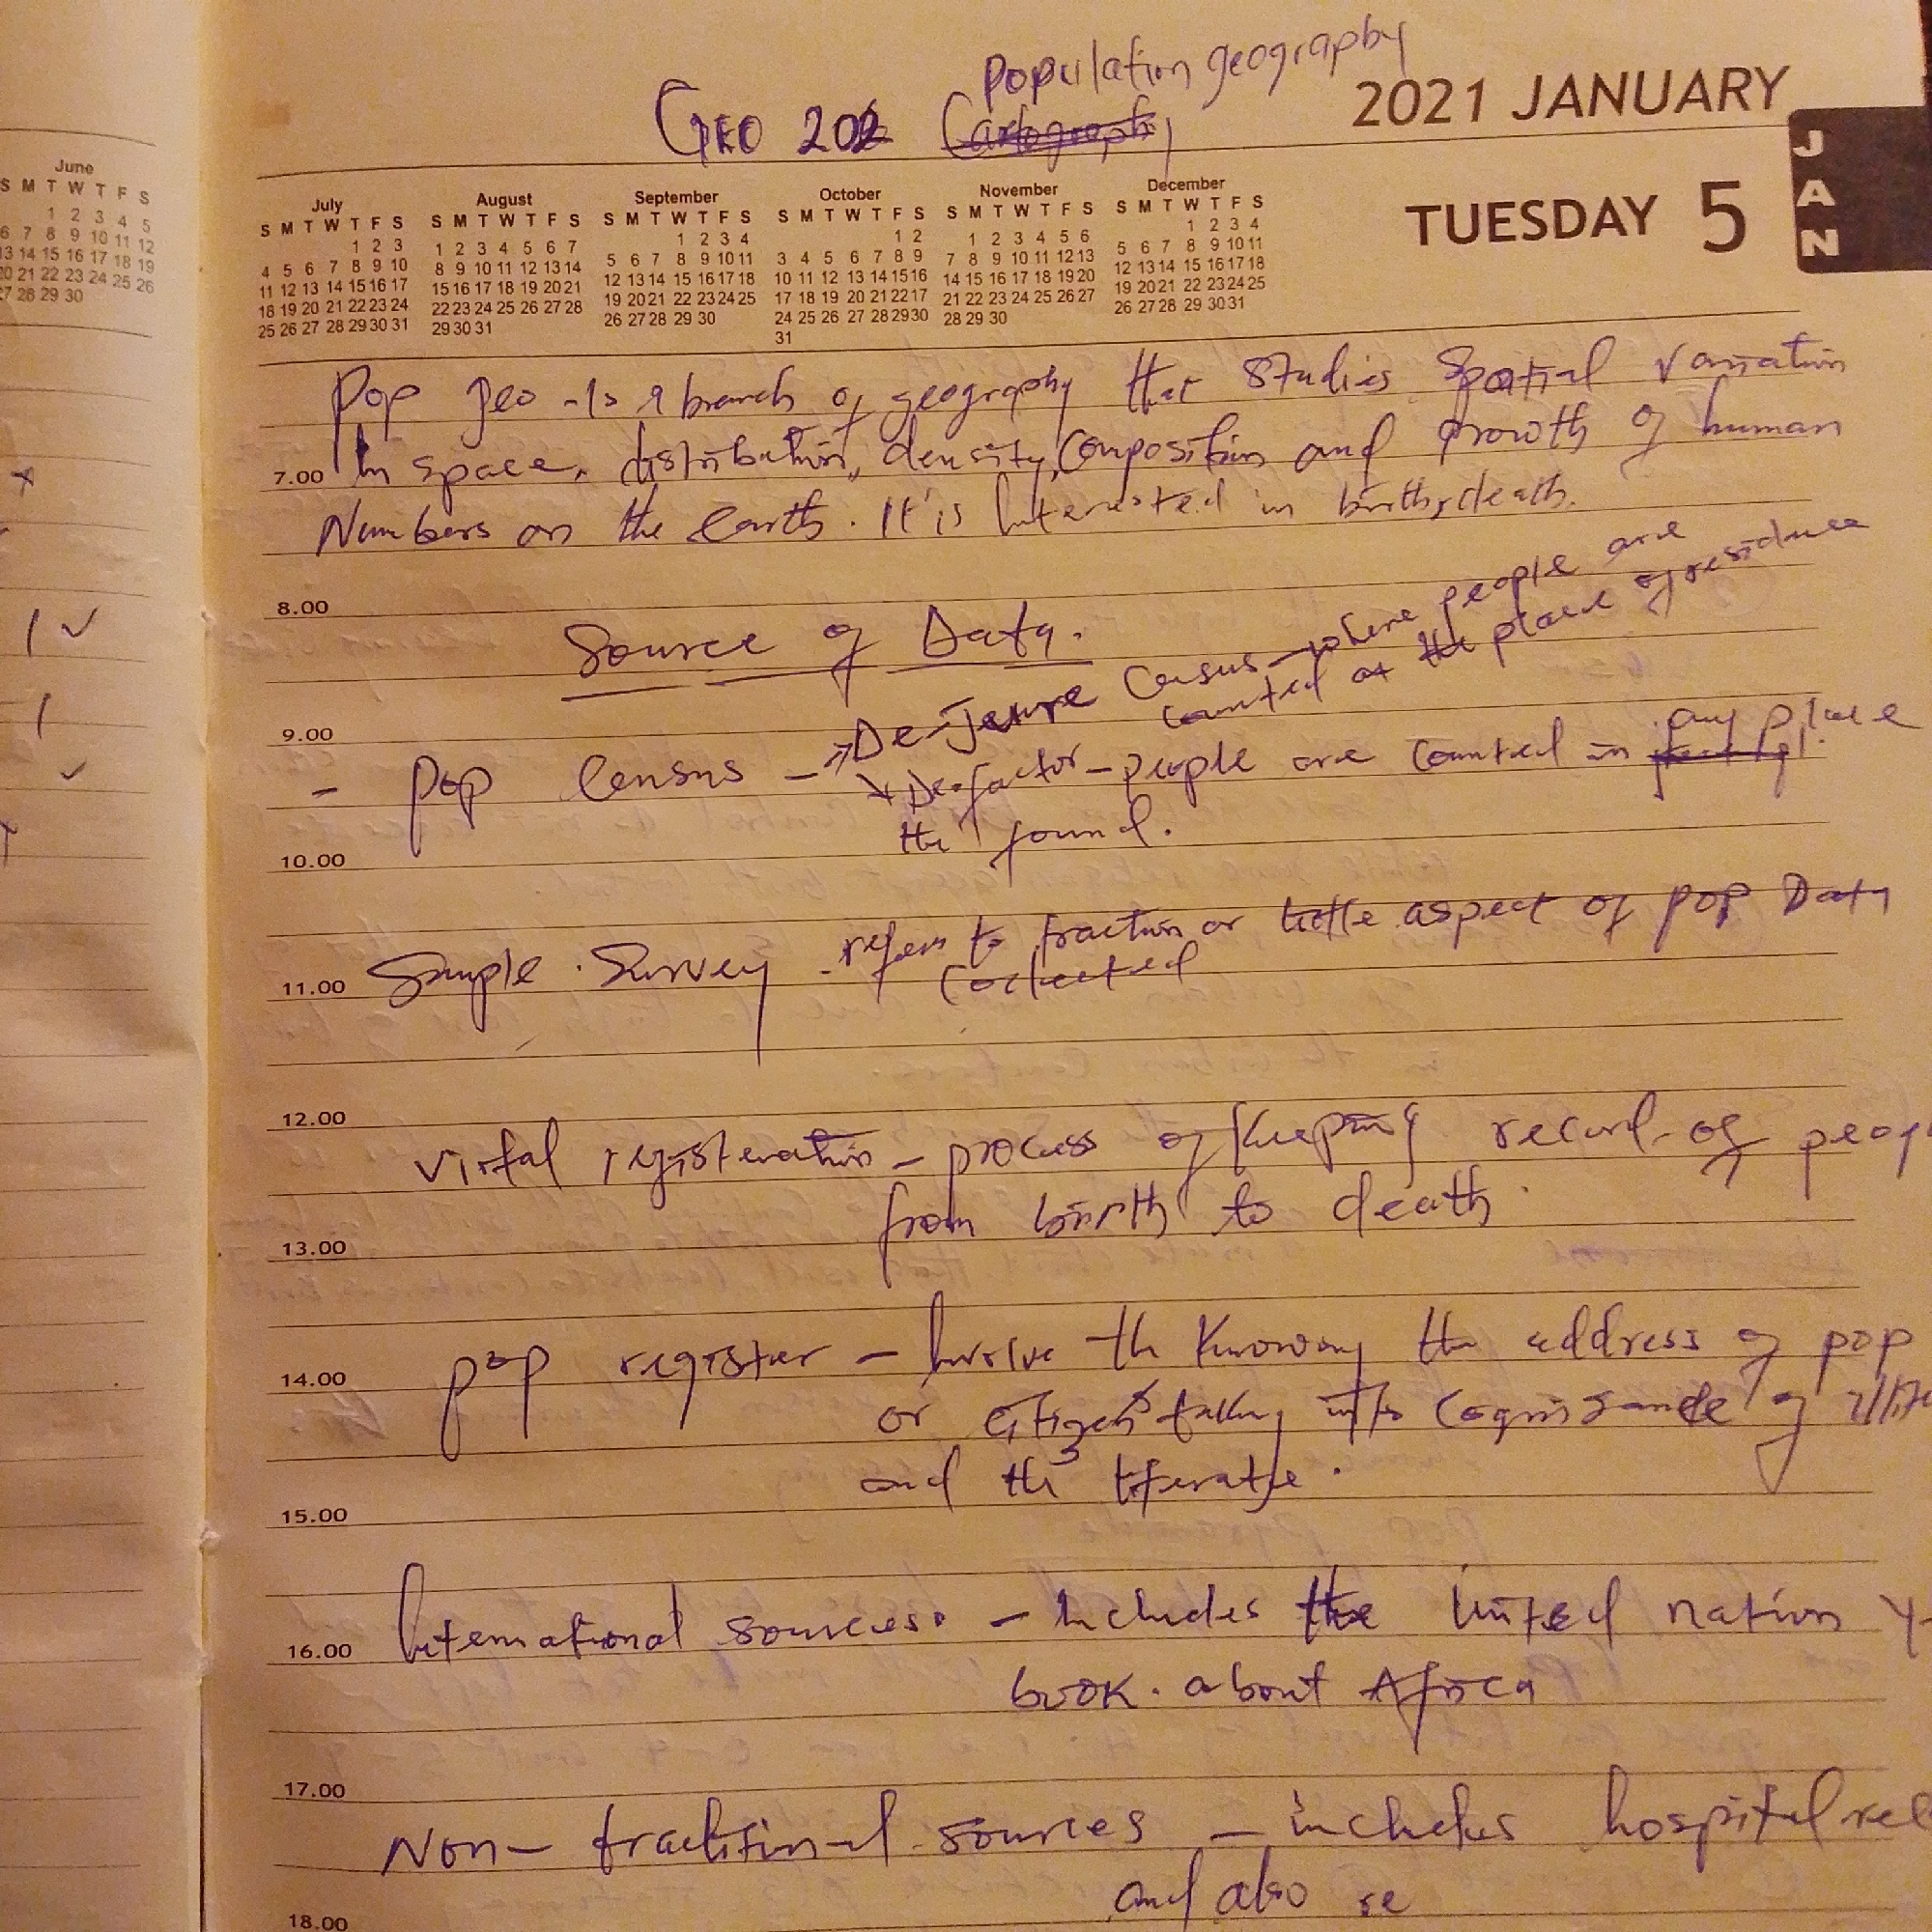 population geography
GEO 202 Cartography
2021 JANUARY
JAN
TUESDAY 5
June
S M T W T F S
1 2 3 4 5
6 7 8 9 10 11 12
13 14 15 16 17 18 19
20 21 22 23 24 25 26
27 28 29 30
July
S M T W T F S
1 2 3
4 5 6 7 8 9 10
11 12 13 14 15 16 17
18 19 20 21 22 23 24
25 26 27 28 29 30 31
August
S M T W T F S
1 2 3 4 5 6 7
8 9 10 11 12 13 14
15 16 17 18 19 20 21
22 23 24 25 26 27 28
29 30 31
September
S M T W T F S
1 2 3 4
5 6 7 8 9 10 11
12 13 14 15 16 17 18
19 20 21 22 23 24 25
26 27 28 29 30
October
S M T W T F S
1 2
3 4 5 6 7 8 9
10 11 12 13 14 15 16
17 18 19 20 21 22 17
24 25 26 27 28 29 30
31
November
S M T W T F S
1 2 3 4 5 6
7 8 9 10 11 12 13
14 15 16 17 18 19 20
21 22 23 24 25 26 27
28 29 30
December
S M T W T F S
1 2 3 4
5 6 7 8 9 10 11
12 13 14 15 16 17 18
19 20 21 22 23 24 25
26 27 28 29 30 31
Pop geo - Is a branch of geography that studies spatial variation
7.00 In space, distribution, density, composition and growth of human
Numbers on the earth. It is Interested in birth, death.
8.00
Source of Data.
De-Jeure Census - where people are
counted at the place of residence
9.00
- pop Census - De-factor - people are counted in any place
the found.
10.00
Sample Survey - refers to fraction or little aspect of pop Data
11.00
collected
12.00
virtal registeration - process of keeping record of
from birth to death.
13.00
pop register - Involve the knowing the address of pop
14.00
or citizens taking into cognisance of
and the literate.
15.00
International sources. - Includes the United nation
16.00
book. about Africa
17.00
Non-traditional sources - includes hospital
and also
18.00